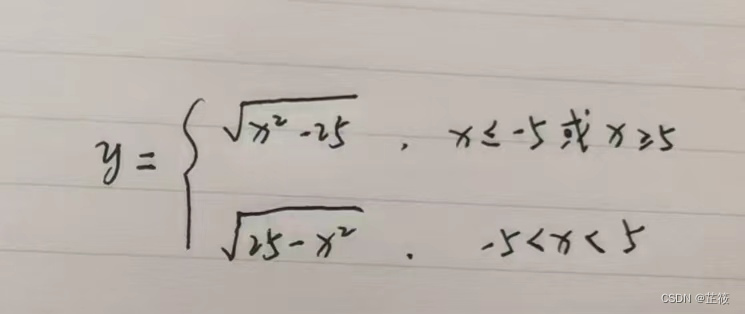 y = { √(x² - 25) , x ≤ -5 或 x ≥ 5
√(25 - x²) . -5 < x < 5
CSDN @芷筱